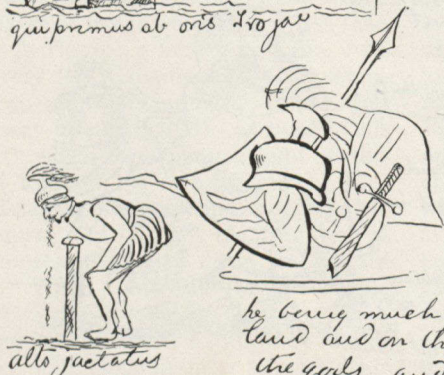 qui primus ab oris Trojae
alto jactatus
he being much
land and on th
the gods and